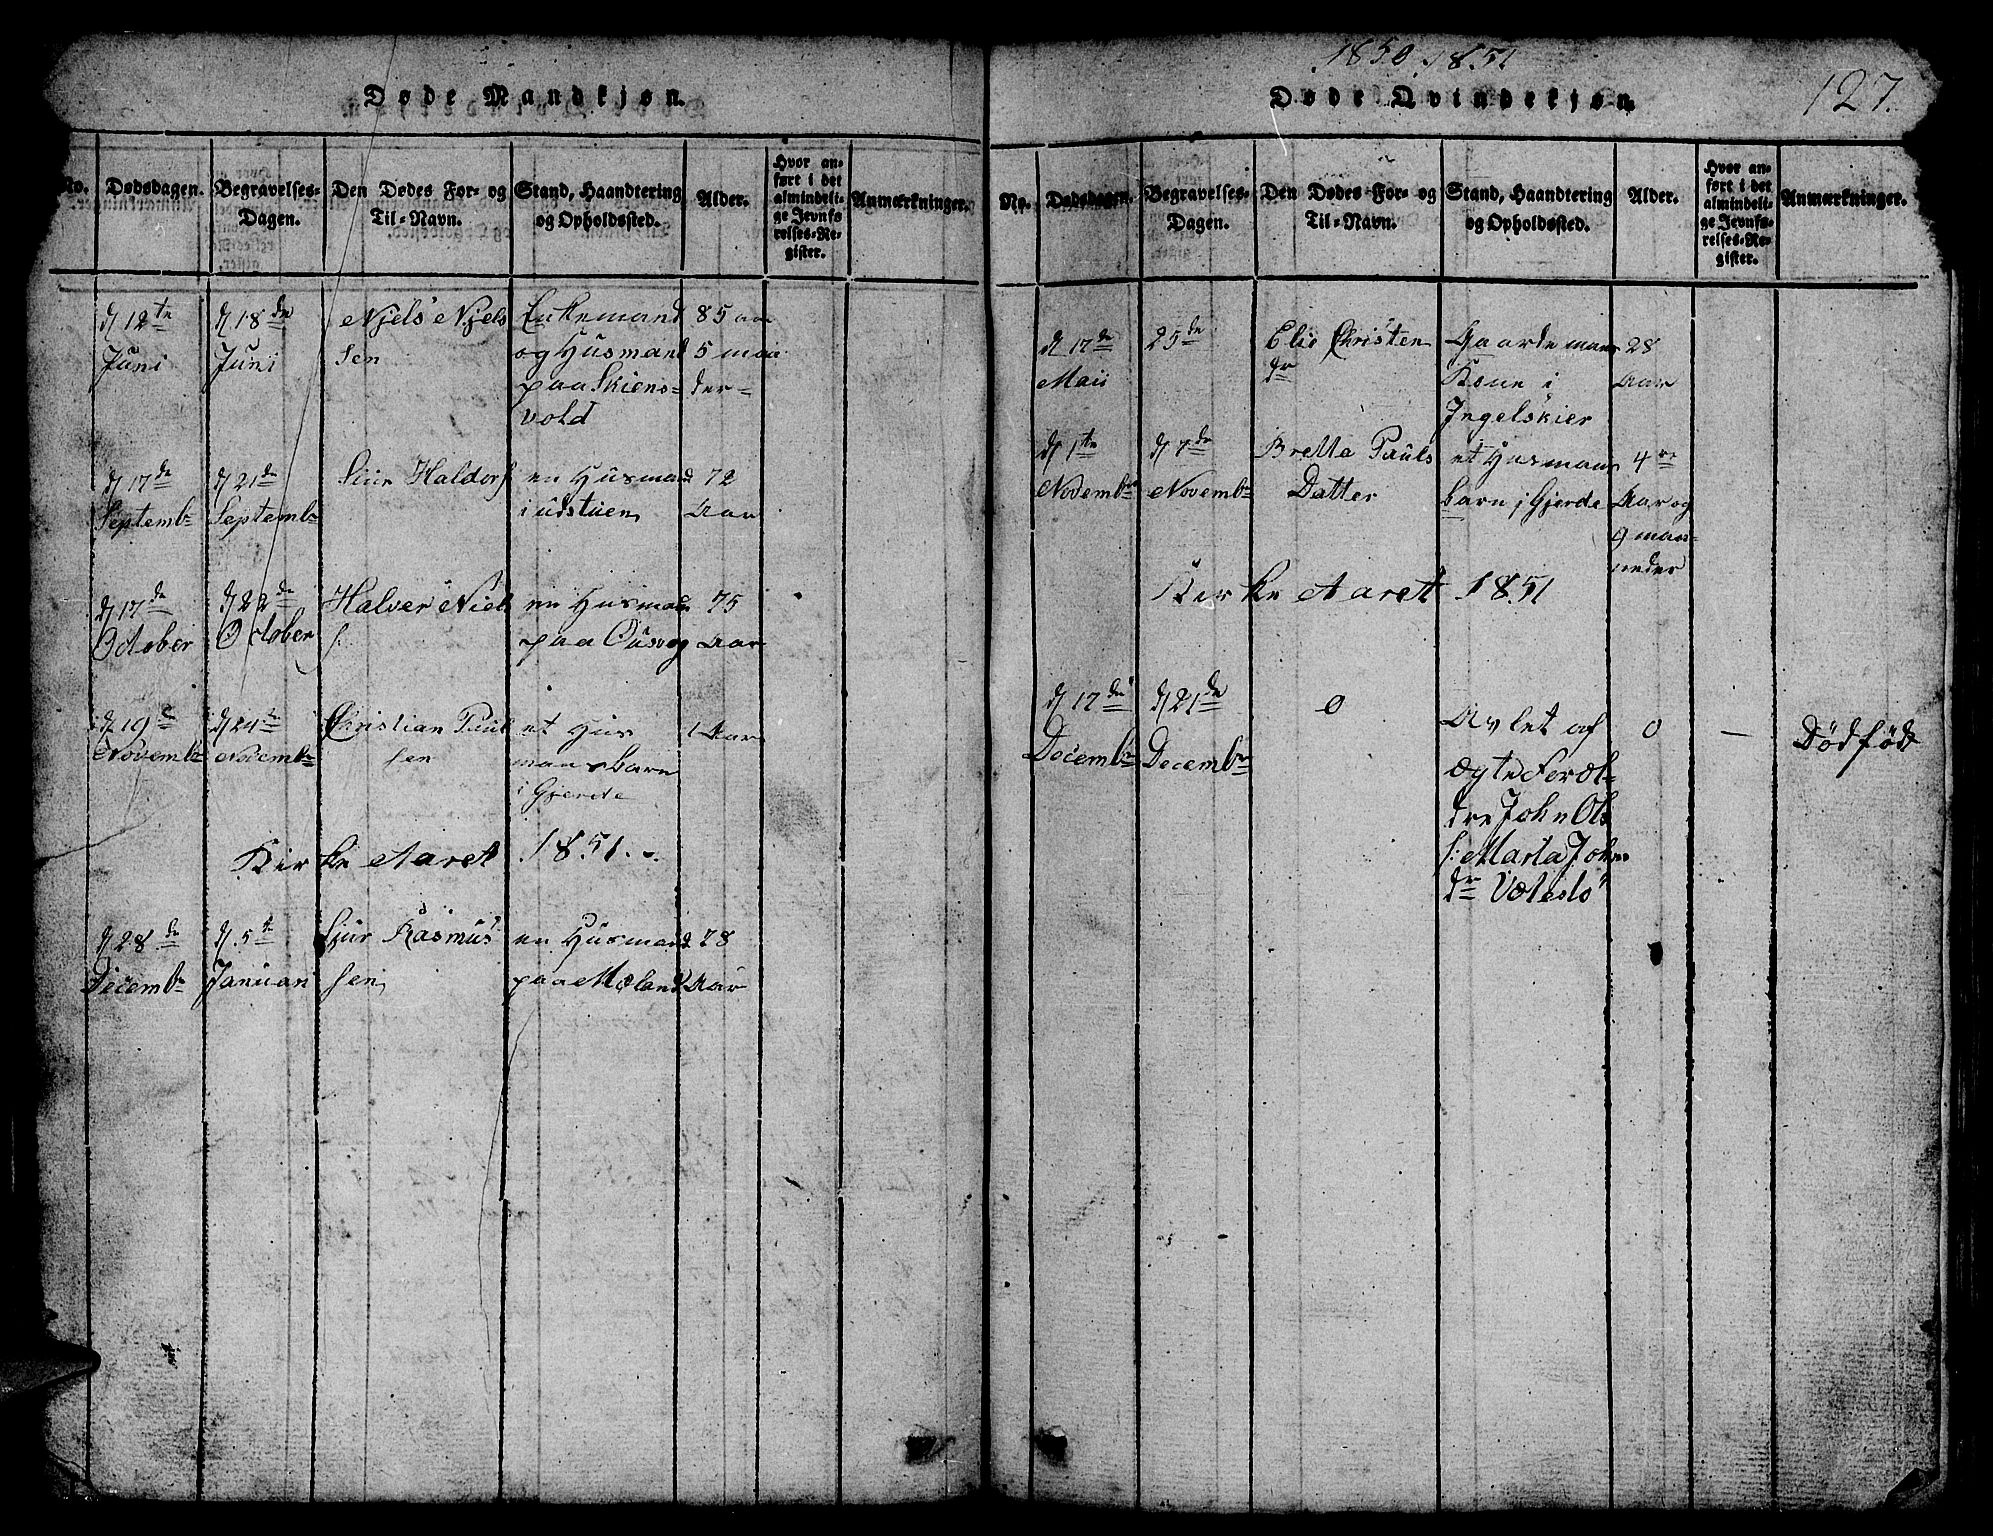 Døde Mandkjøn.
No.
Dødsdagen.
Begravelses-
Dagen.
Den Dødes For- og
Til-Navn.
Stand, Haandtering
og Opholdssted.
Alder.
Hvor an-
ført i det
almindeli-
ge Jevnfø
relses-Re-
gister.
Anmærkninger.
d 12te
Juni
d 18de
Juni
Njels Njels
sen
Enkemand
og Husmand
paa Skiens-
vold
85 aa
5 maa
der-
d 17de
Septembr
d 21de
Septembr
Siur Haldors
en Husmand
i udstuen
72
Aar
d 17de
October
d 22de
October
Halver Niels
s:
en Husmand
paa
75
Aar
d 19de
Novembr
d 24de
Novembr
Christian Paul
sen
et Hus
mansbarn
i Gjerde
1 Aar
Kirke Aaret 1851.
d 28de
Decembr
d 5te
Januar
Sjur Rasmus
sen
en Husmand
paa Mæland
78
Aar
1850 1851
127.
Døde Qvindekjøn.
No.
Dødsdagen.
Begravelses-
Dagen.
Den Dødes For- og
Til-Navn.
Stand, Haandtering
og Opholdssted.
Alder.
Hvor an-
ført i det
almindeli-
ge Jevnfø-
relses-Re-
gister.
Anmærkninger.
d 17de
Maii
25de
Elie Christen
dr
Gaardemans
Kone i
Ingelskier
28
Aar
d 1te
Novembr
d 7de
Novembr
Bretta Pauls
Datter
et Husmans
barn i Gjerde
4re
Aar og
9 maa-
neder
Kirke Aaret 1851
d 17de
Decembr
d 21de
Decembr
0
Avlet af
ægte Foræl-
dre John Ols
s: Marta Johns
dr
0
—
Dødfødt